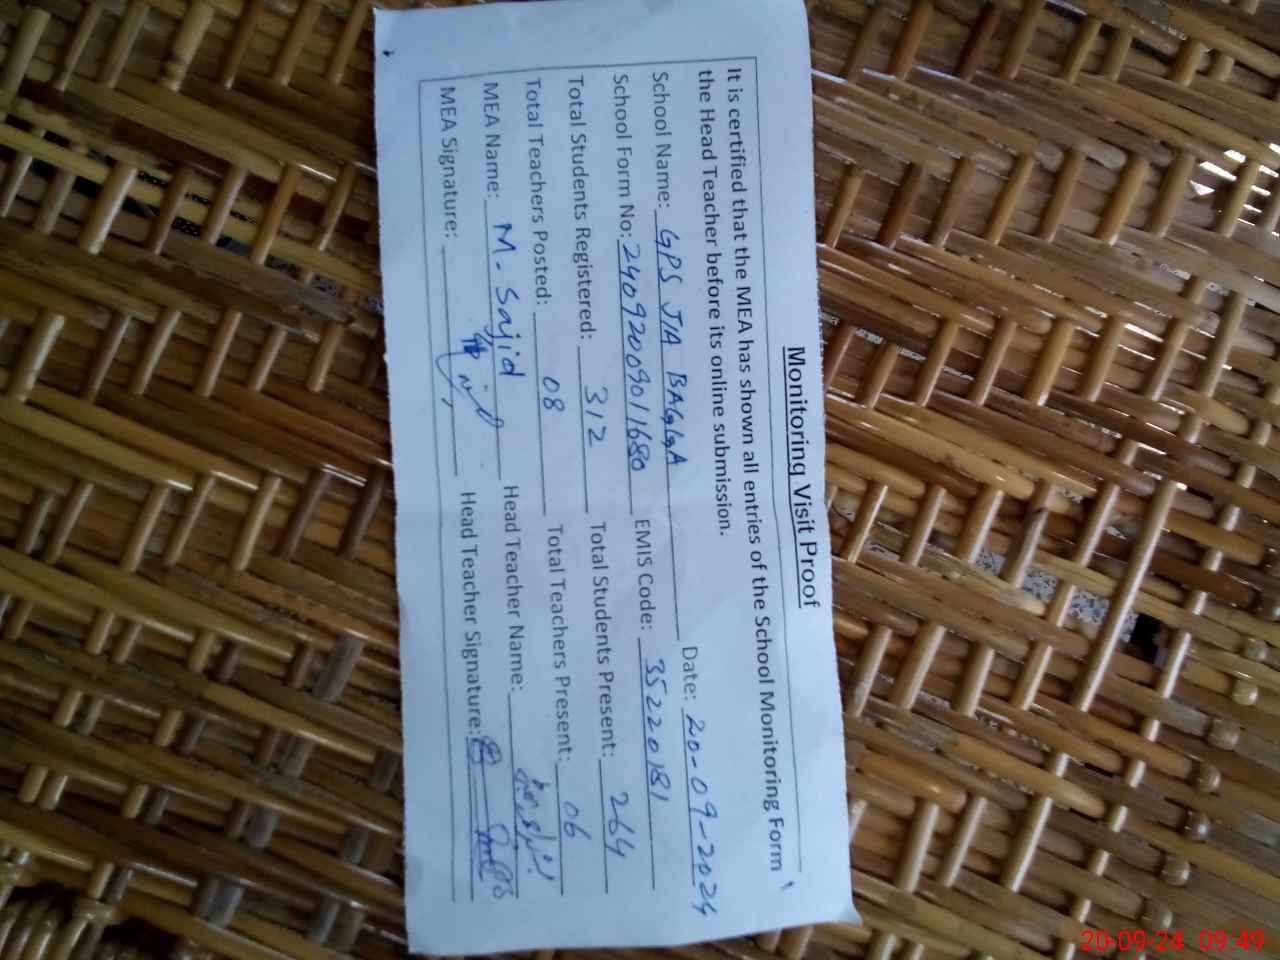 Monitoring Visit Proof
It is certified that the MEA has shown all entries of the School Monitoring Form
the Head Teacher before its online submission.
School Name: GPS JIA BAGGA Date: 20-09-2024
School Form No: 24092009011680 EMIS Code: 35220181
Total Students Registered: 312 Total Students Present: 264
Total Teachers Posted: 08 Total Teachers Present: 06
MEA Name: M. Sajid Head Teacher Name:
MEA Signature: Head Teacher Signature:
20-09-24 09:49